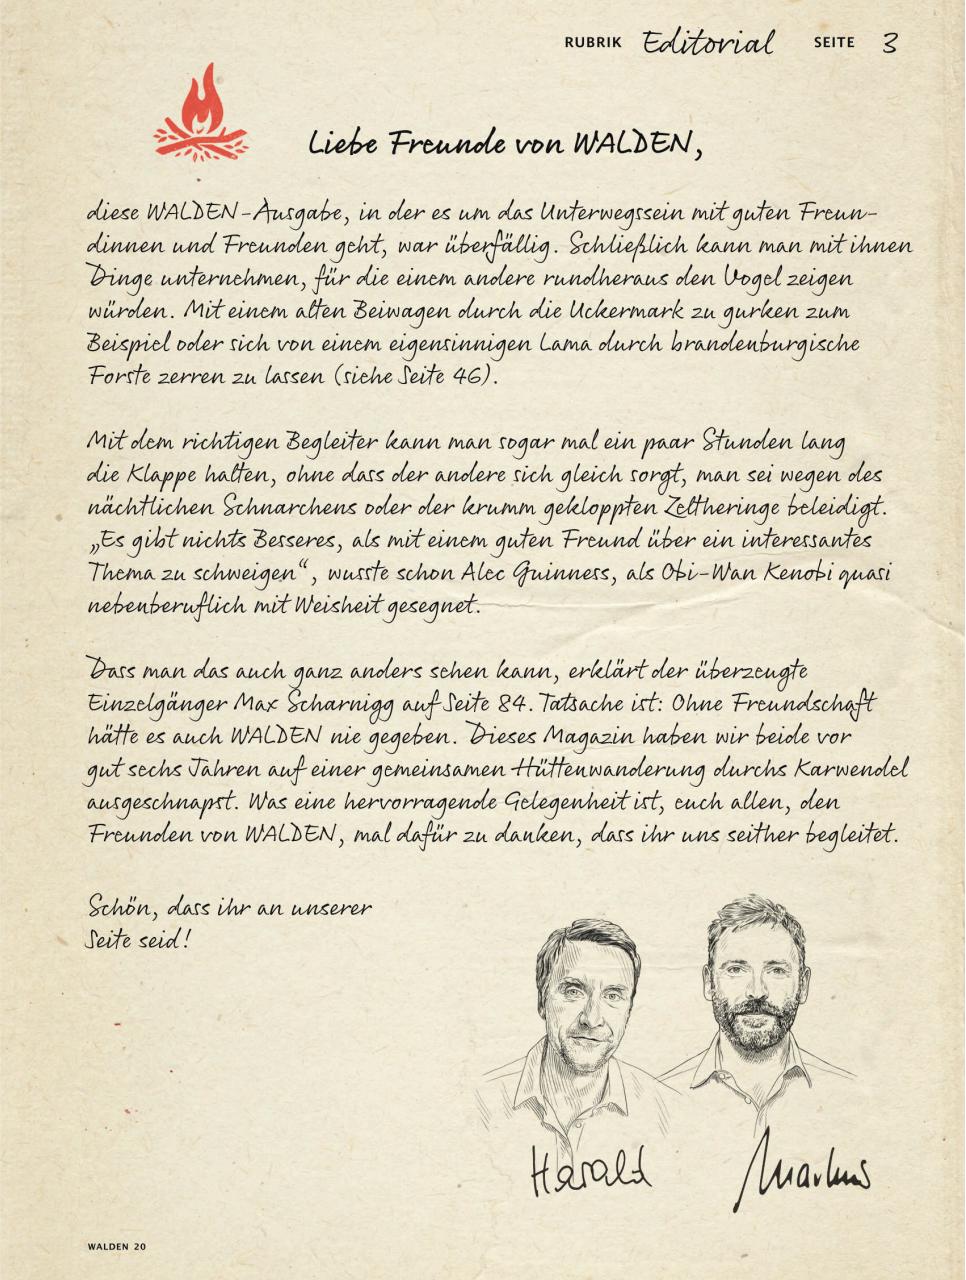 RUBRIK Editorial SEITE 3
Liebe Freunde von WALDEN,
diese WALDEN-Ausgabe, in der es um das Unterwegssein mit guten Freun-
dinnen und Freunden geht, war überfällig. Schließlich kann man mit ihnen
Dinge unternehmen, für die einem andere rundheraus den Vogel zeigen
würden. Mit einem alten Beiwagen durch die Uckermark zu gurken zum
Beispiel oder sich von einem eigensinnigen Lama durch brandenburgische
Forste zerren zu lassen (siehe Seite 46).
Mit dem richtigen Begleiter kann man sogar mal ein paar Stunden lang
die Klappe halten, ohne dass der andere sich gleich sorgt, man sei wegen des
nächtlichen Schnarchens oder der krumm gekloppten Zeltheringe beleidigt.
„Es gibt nichts Besseres, als mit einem guten Freund über ein interessantes
Thema zu schweigen“, wusste schon Alec Guinness, als Obi-Wan Kenobi quasi
nebenberuflich mit Weisheit gesegnet.
Dass man das auch ganz anders sehen kann, erklärt der überzeugte
Einzelgänger Max Scharnigg auf Seite 84. Tatsache ist: Ohne Freundschaft
hätte es auch WALDEN nie gegeben. Dieses Magazin haben wir beide vor
gut sechs Jahren auf einer gemeinsamen Hüttenwanderung durchs Karwendel
ausgeschnapst. Was eine hervorragende Gelegenheit ist, euch allen, den
Freunden von WALDEN, mal dafür zu danken, dass ihr uns seither begleitet.
Schön, dass ihr an unserer
Seite seid!
Harald Markus
WALDEN 20